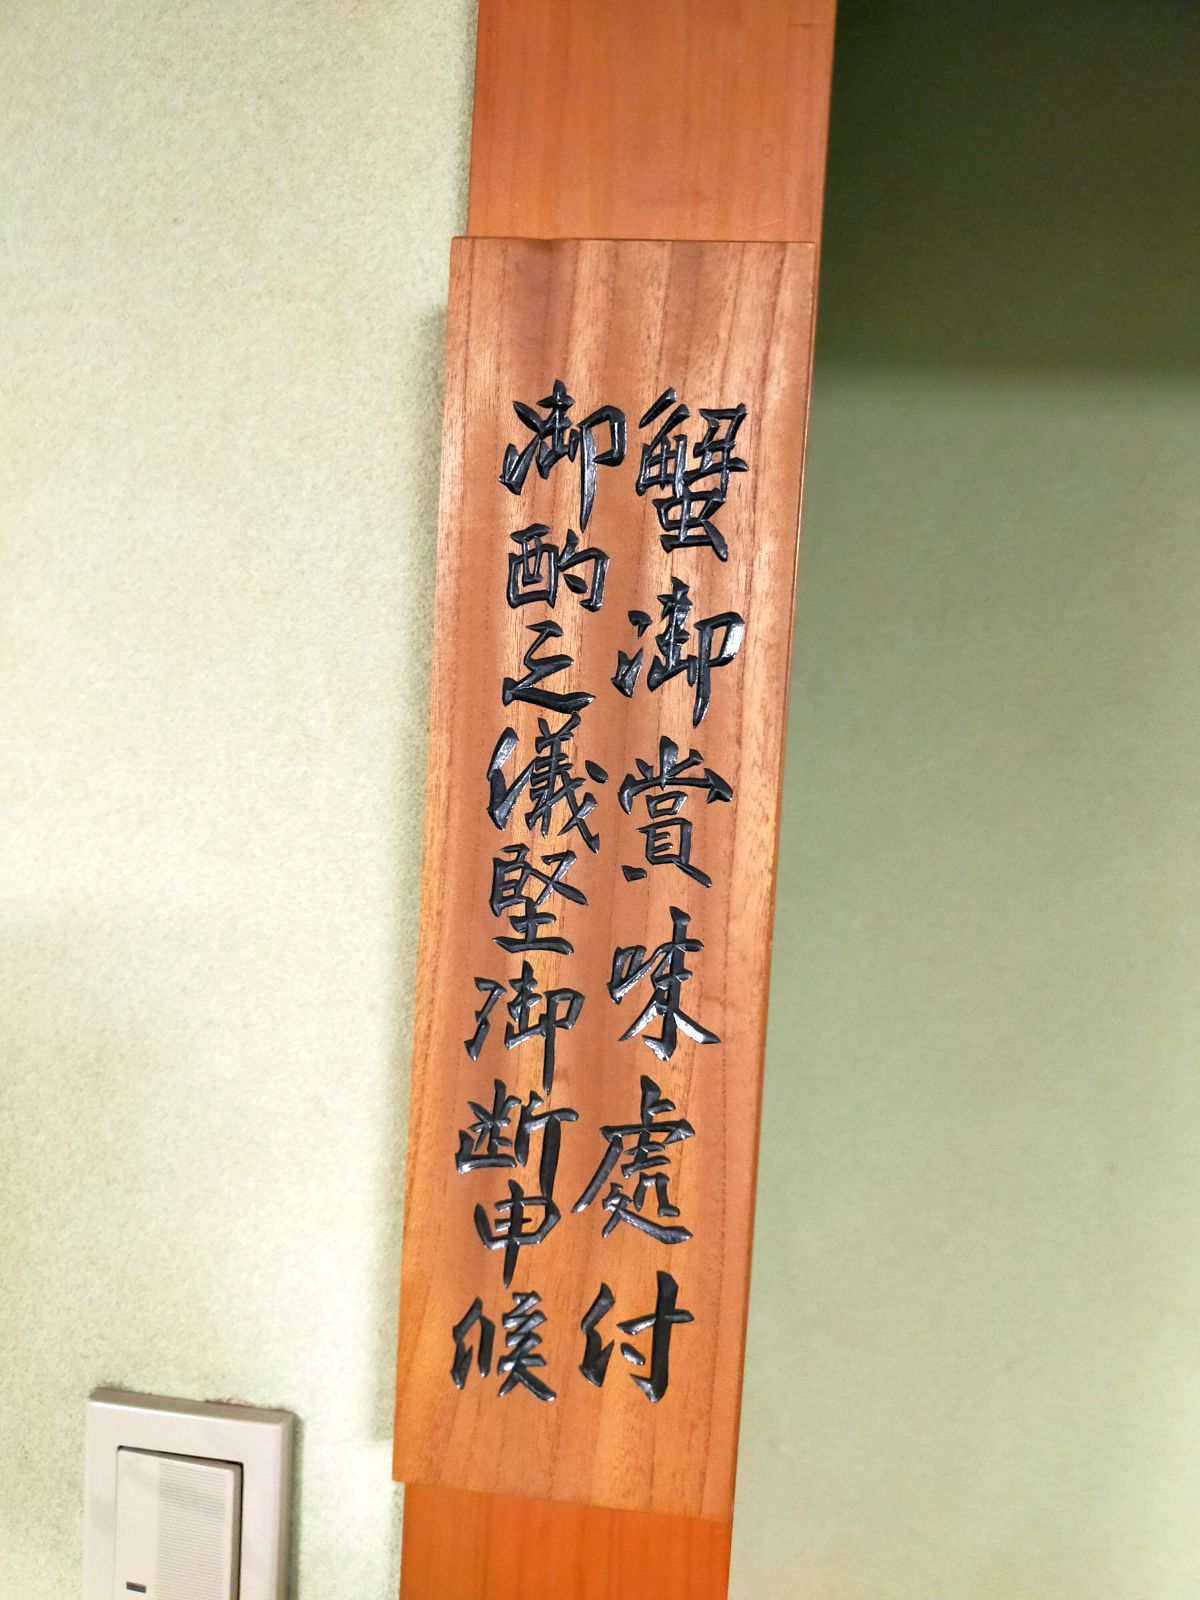 蟹御賞味處付
御酌之儀堅御断申候